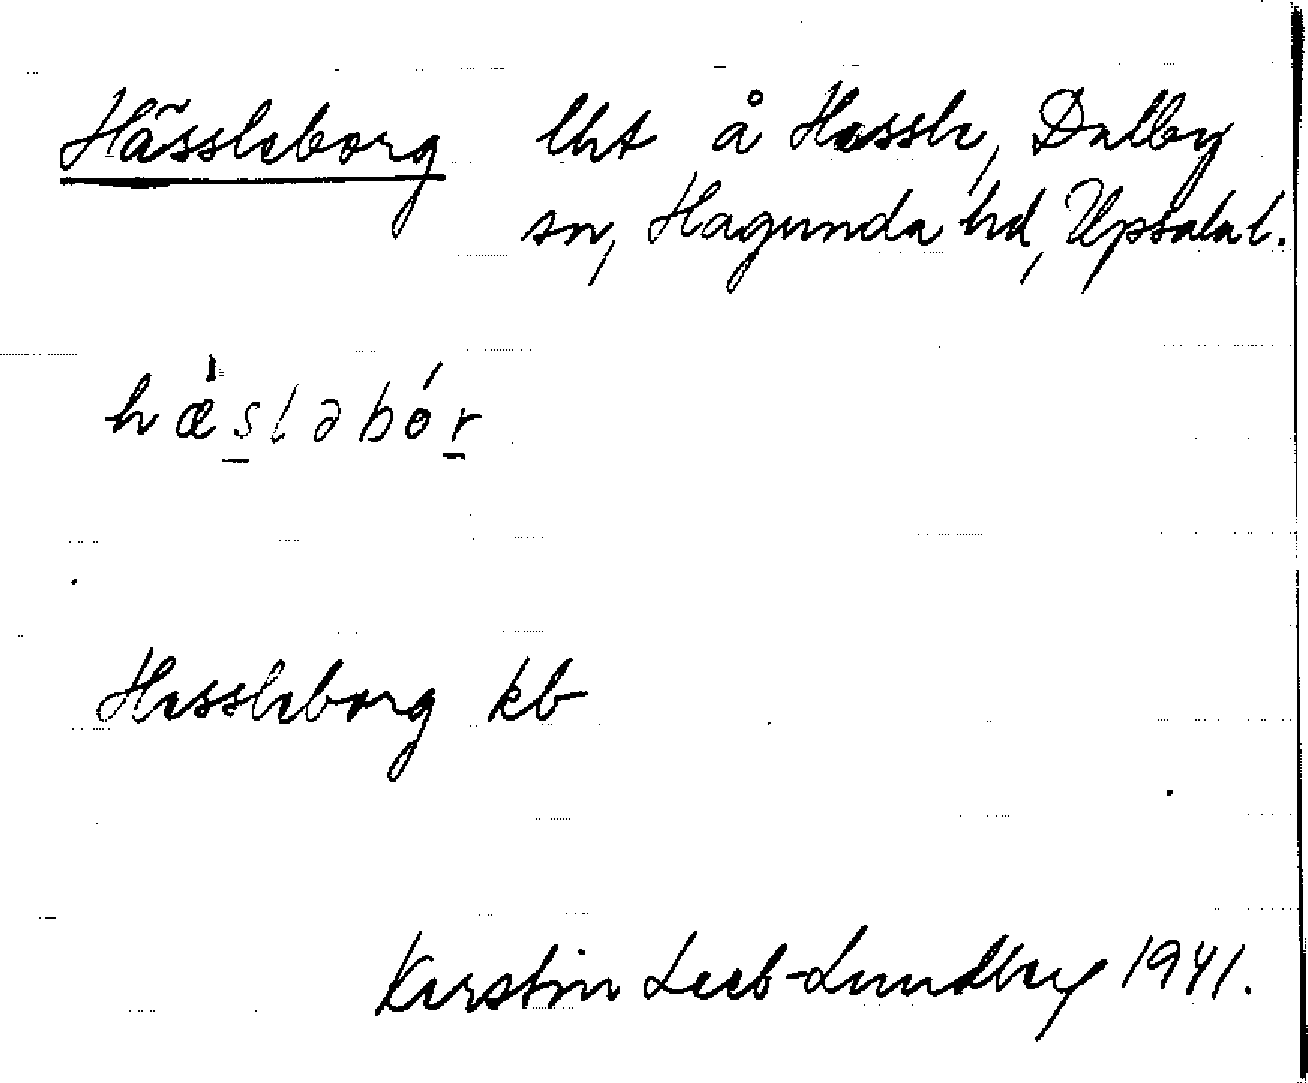 Hässleborg lht å Hessle, Dalby
sn, Hagunda hd, Upsalal.
hæ̀s̠ləbór̠
Hessleborg kb
Kerstin Leeb-Lundberg 1941.